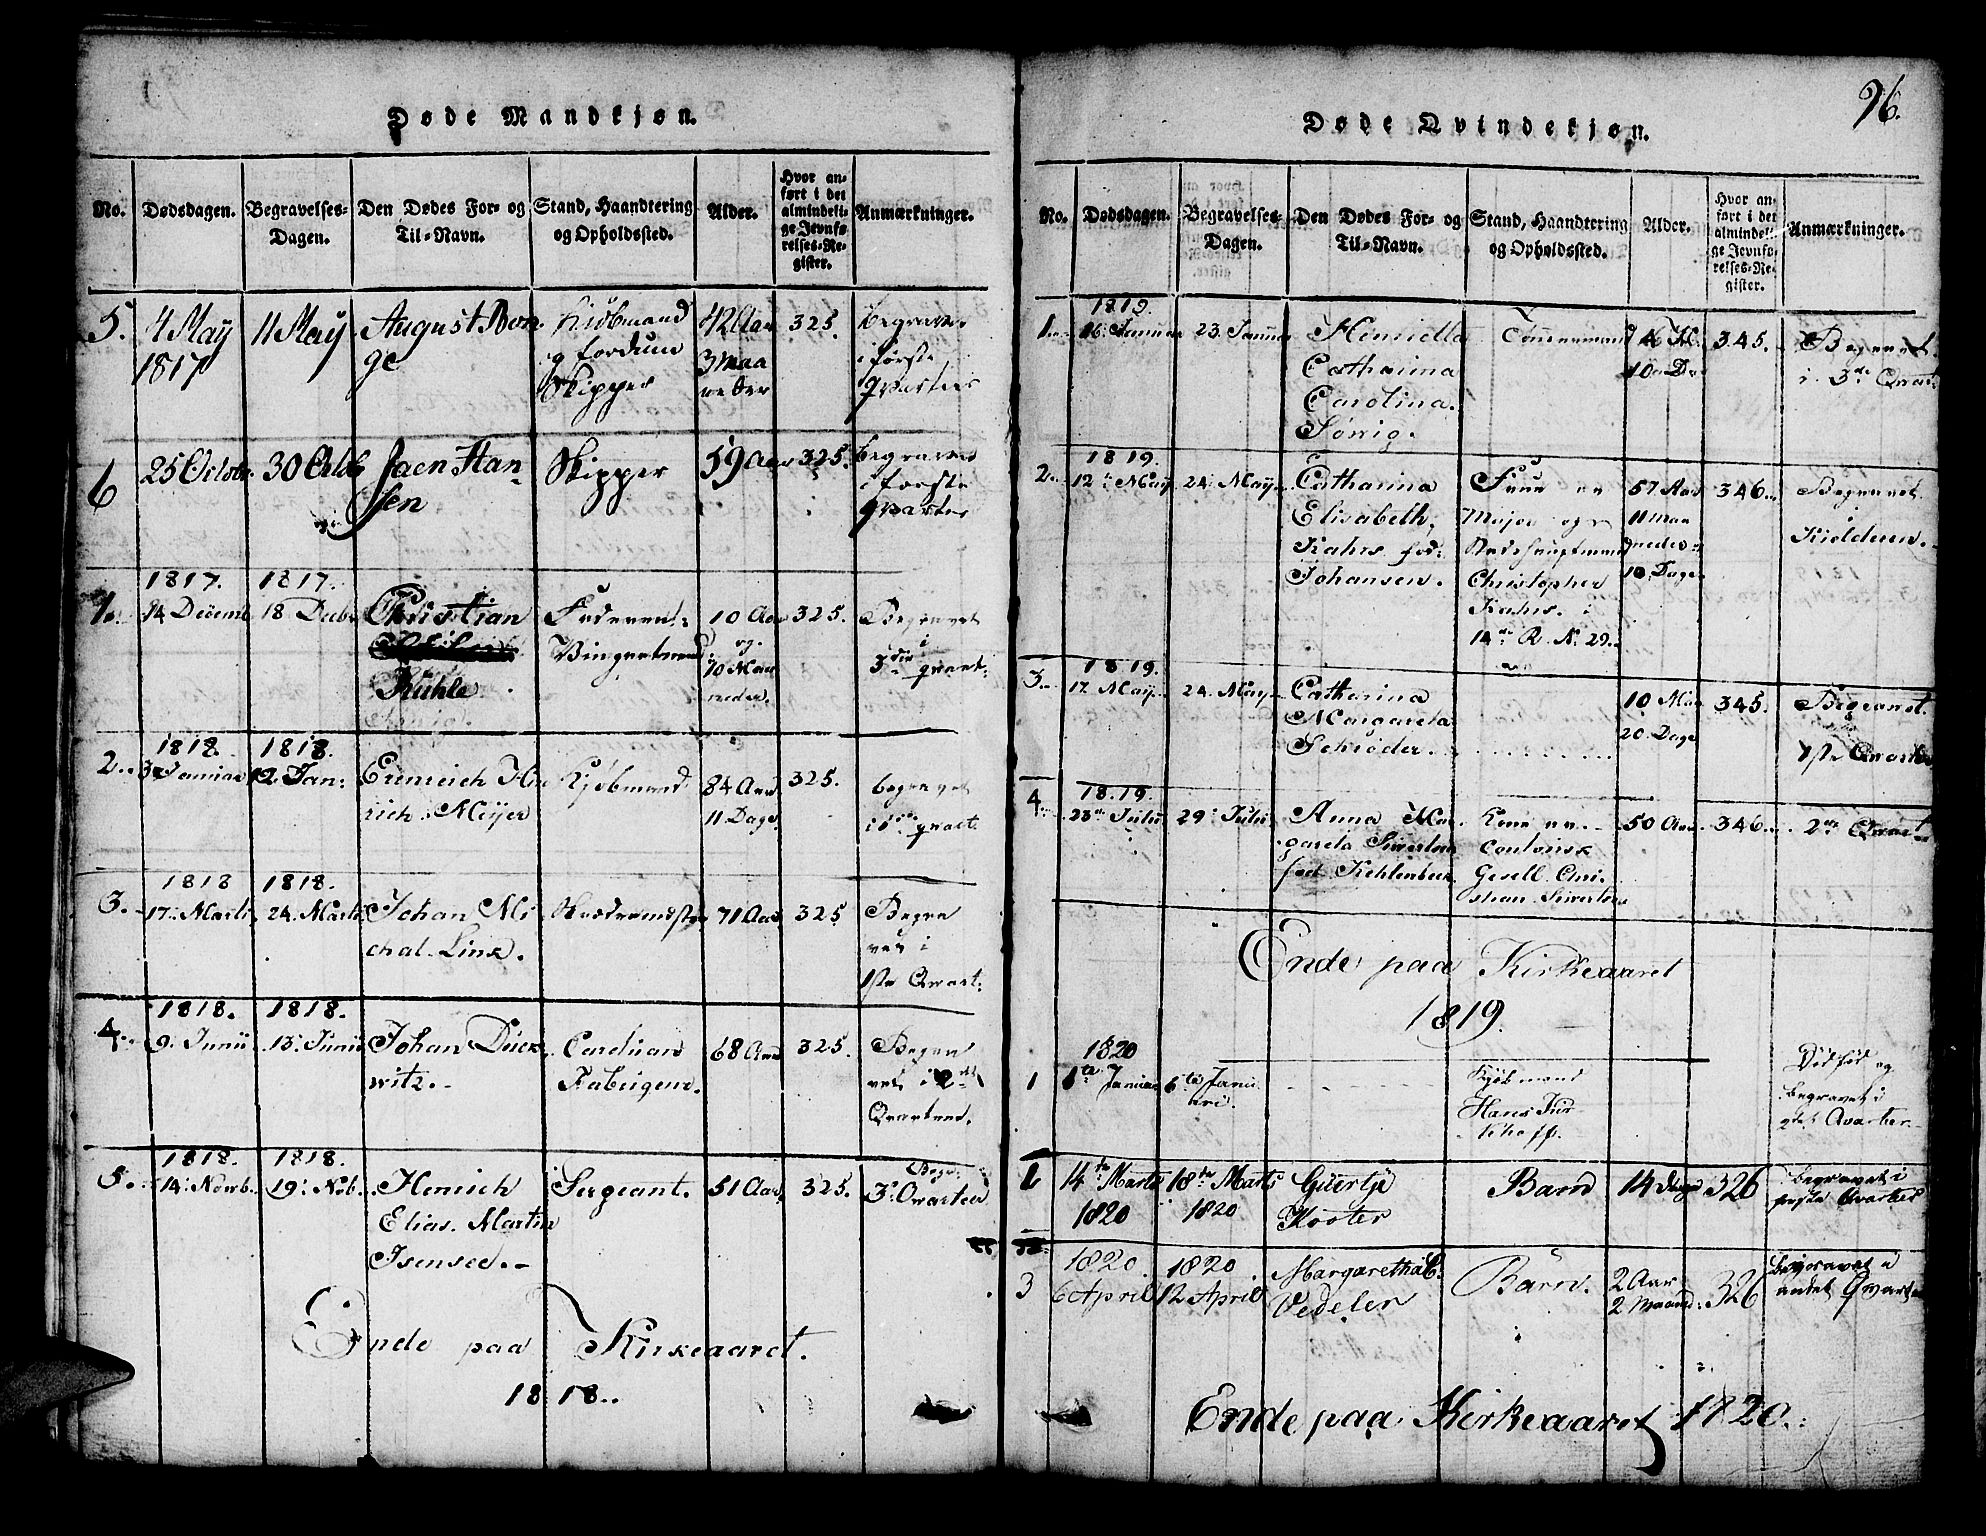 Døde Mandkjøn.
No.
Dødsdagen.
Begravelses-
Dagen.
Den Dødes For- og
Til-Navn.
Stand, Haandtering
og Opholdssted.
Alder.
Hvor an-
ført i det
almindeli-
ge Jevnfø-
relses-Re-
gister.
Anmærkninger.
5.
4 Maÿ
1817
11 Maÿ
August Bon
ge
Kiöbmand
og fordum
Skipper
42 Aar
3 Maa
neder
325
begraves
i förste
qvarteer
6
25 Octobr
30 Octob
Jaen Han-
sen
Skipper
59 Aar
325.
begraves
i förste
qvarter
1.
1817.
14 Decemb
1817.
18 Decbr
Christian
Kühle
10 Aar
og
10 Maa
neder.
325.
Begravet
i
3die qvart:
2.
1818.
3 Januar
1818.
12 Jan:
Emrich Hen
rich Meÿer
Kjøbmand
84 Aar
11 Dage
325.
begravet
i 1ste qvart.
3.
1818
17. Marti
1818.
24. Marti
Johan Mi
chal. Link.
71 Aar
325
Begra
vet i
1ste Qvart:
4.
1818.
9. Junii
1818.
13. Junii
Johan Dück
witz.
Carduan
Fabrigeur.
68 Aar
325.
Begra
vet i 2det
Qvarteer.
5.
1818.
14. Novb.
1818.
19. Nob.
Henrich
Elias. Martin
Isensee.
Sergeant.
51 Aar
325.
Begr:
3. Qvarteer
Ende paa Kirkeaaret.
1818.
96.
Døde Qvindekjøn.
No.
Dødsdagen.
Begravelses-
Dagen.
Den Dødes For- og
Til-Navn.
Stand, Haandtering
og Opholdssted.
Alder.
Hvor an-
ført i det
almindeli-
ge Jevnfø-
relses-Re-
gister.
Anmærkninger.
1.
1819.
16. Januar
23. Januar
Henriella
Catharina
Carolina.
Sönig.
10 Da
345.
Begravet.
i 3die Qvart
2.
1819.
12. Maÿ
24. Maÿ
Catharina
Elisabeth.
Kahrs. fød:
Johansen.
Frue
Major og
Christopher
Kahrs. i
14de R. N. 29.
57 Aar
11 Maa
neder
10. Dage
346.
Begravet
i
Kirken.
3.
1819.
17. Maÿ
24. Maÿ
Catharina
Margareta
Schröder.
10 Maa
20. Dage
345.
Begravet.
1ste Qvarter
4.
1819.
23. Julii
29. Julii
Anna Mar
gareta Siverten
fød Kehlenbeck
Kone
Gesell. Chri
stian Siverten
50 Aar
346.
2det Qvart
Ende paa Kirkeaaret
1819.
1
1820
Januar
6te Janu
ari.
Kjøbmand
Hans Kir
khoff.
Dödföd og
begravet i
2det Qvarter
14de Marts
1820
18de Marts
1820
Güertje
Kooter
Barn
14 dage
326
begravet i
förste Qvarter
3
1820.
6 April
1820.
12 April
Margaretha C:
Vedeler
Barn.
2 Aar
2 Maaned:
326
begravet i
andet Qvart
Ende paa Kirkeaaret 1820.